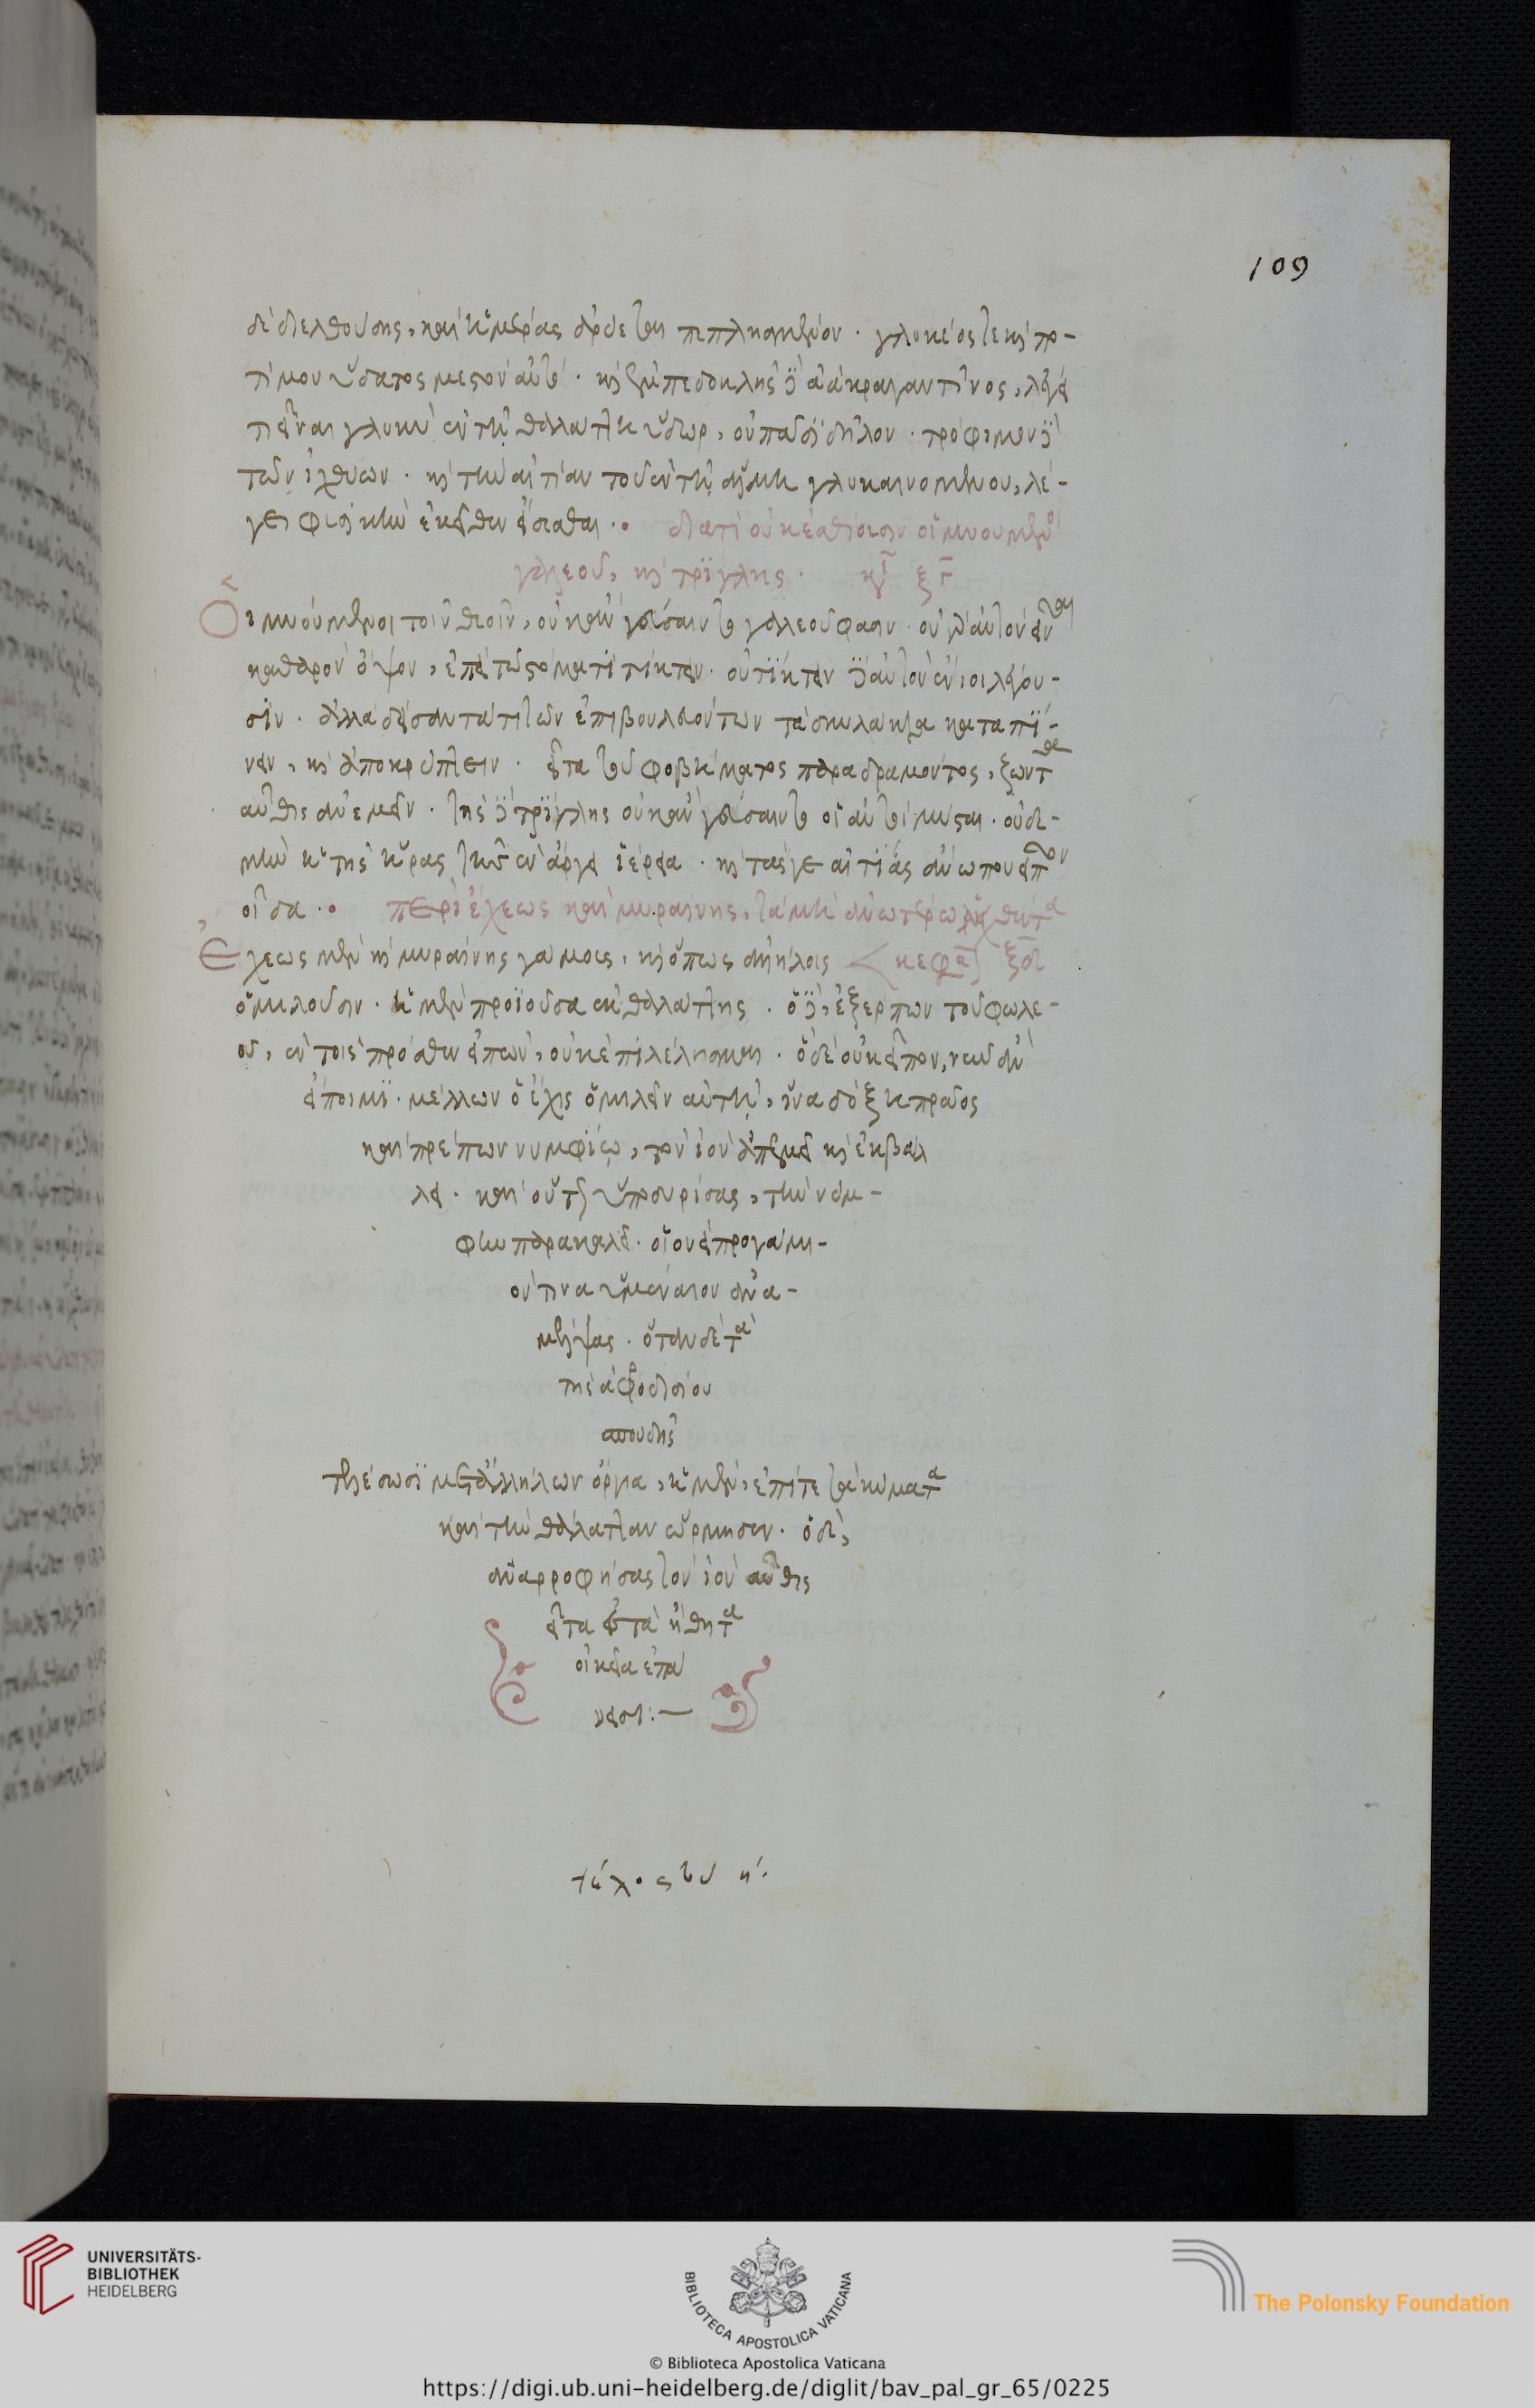 δὲ διελθούσης, καὶ ἡμέρας αἴρεσθαι πεπληρωμένον. γλυκέος τε καὶ πο-
τίμου ὕδατος μεστὸν αὐτό. καὶ ἐμπεδοκλῆς δὲ ὁ ἀκραγαντῖνος, λέγει
τι εἶναι γλυκὺ ἐν τῇ θαλάττῃ ὕδωρ, οὐ πᾶσι δῆλον. τρόφιμον δὲ
τῶν ἰχθύων. καὶ τὴν αἰτίαν τοῦ ἐν τῇ ἅλμῃ γλυκαινομένου, λέ-
γει φυσικὴν ἐκεῖθεν εἴσεσθαι. διατί οὐκ ἐσθίουσιν οἱ μυούμενοι
γαλεοῦ, καὶ τρίγλης. κεφ ξε
Οἱ μυούμενοι τοῖν θεοῖν, οὐκ ἂν γεύσαιντο γαλεοῦ φασιν. οὐ γὰρ αὐτὸν εἶναι
καθαρὸν ὄψον, ἐπεὶ τῷ στόματι τίκτει. οὐ τίκτειν δὲ αὐτὸν ἔνιοι λέγου-
σιν. ἀλλὰ δείσαντά τι τῶν ἐπιβουλευόντων τὰ σκυλάκια καταπί-
νειν, καὶ ἀποκρύπτειν. εἶτα τοῦ φοβήματος παραδραμόντος, ζῶντα
αὖθις ἀνεμεῖν. τῆς δὲ τρίγλης οὐκ ἂν γεύσαιντο οἱ αὐτοὶ μύσται. οὐδὲ
μὴν ἡ τῆς ἥρας τῆς ἐν ἄργει ἱέρεια. καὶ τάς γε αἰτίας ἄνω που εἰπὼν
οἶδα. περὶ ἔχεως καὶ μυραίνης, τὰ μὴ ἀνωτέρω ῥηθέντα
Ἔχεως μὲν καὶ μυραίνης γάμους, καὶ ὅπως ἀλλήλοις κεφα ξϛ
ὁμιλοῦσιν. ἡ μὲν προϊοῦσα ἐκ θαλάττης. ὁ δὲ, ἐξέρπων τοῦ φωλε-
οῦ, ἐν τοῖς πρόσθεν εἰπὼν, οὐκ ἐπιλέλησμαι. ὃ δὲ οὐκ εἶπον, νῦν ἂν
εἴποιμι. μέλλων ὁ ἔχις ὁμιλεῖν αὐτῇ, ἵνα δόξῃ πρᾶος
καὶ πρέπων νυμφίῳ, τὸν ἰὸν ἀπεμεῖ καὶ ἐκβάλ
λει. καὶ οὕτως ὑποσυρίσας, τὴν νύμ-
φην παρακαλεῖ. οἱονεὶ προγάμι-
όν τινα ὑμέναιον ἀνα-
μέλψας. ὅταν δὲ τὰ
τῆς ἀφροδισίου
σπουδῆς
τελέσωσι μετ' ἀλλήλων ὄργια, ἡ μὲν, ἐπί τε τὰ κύματα
καὶ τὴν θάλατταν ὥρμησεν. ὁ δὲ,
ἀναρροφήσας τὸν ἰὸν αὖθις
εἶτα εἰς τὰ ἤθη τὰ
οἰκεῖα ἐπά
νεισι:—
τέλος τοῦ η΄.
109
UNIVERSITÄTS-
BIBLIOTHEK
HEIDELBERG
BIBLIOTECA APOSTOLICA VATICANA
The Polonsky Foundation
© Biblioteca Apostolica Vaticana
https://digi.ub.uni-heidelberg.de/diglit/bav_pal_gr_65/0225